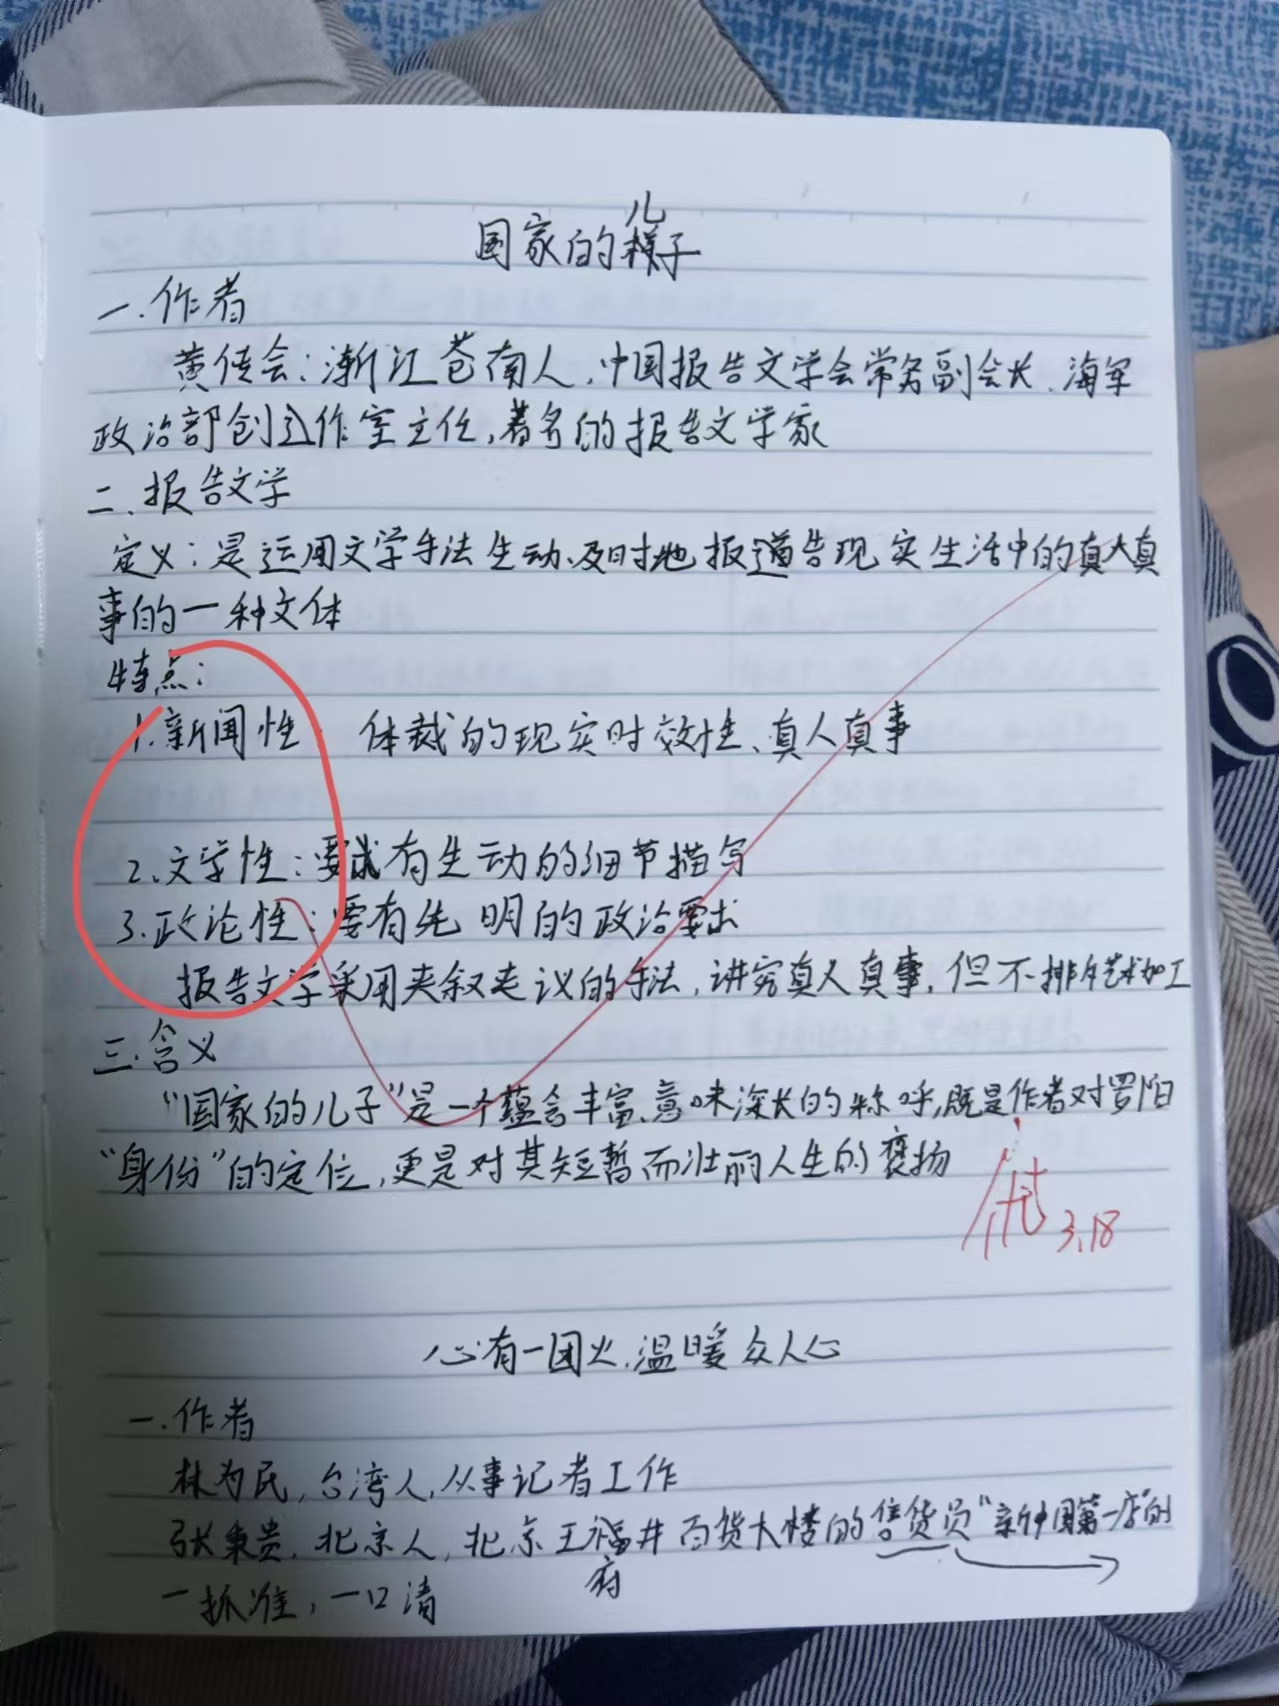 国家的儿子
一.作者
黄传会:浙江苍南人,中国报告文学会常务副会长、海军
政治部创作室主任,著名的报告文学家
二.报告文学
定义:是运用文学手法生动、及时地报道告现实生活中的真人真
事的一种文体
特点:
1.新闻性: 体裁的现实时效性、真人真事
2.文学性:要有生动的细节描写
3.政论性:要有先明的政治要求
报告文学采用夹叙夹议的手法,讲究真人真事,但不排斥艺术加工
三.含义
“国家的儿子”是一个蕴含丰富、意味深长的称呼,既是作者对罗阳
“身份”的定位,更是对其短暂而壮丽人生的褒扬
优 3.18
心有一团火,温暖众人心
一.作者
林为民,台湾人,从事记者工作
张秉贵,北京人,北京王府井百货大楼的售货员“新中国第一店”的
一抓准,一口清